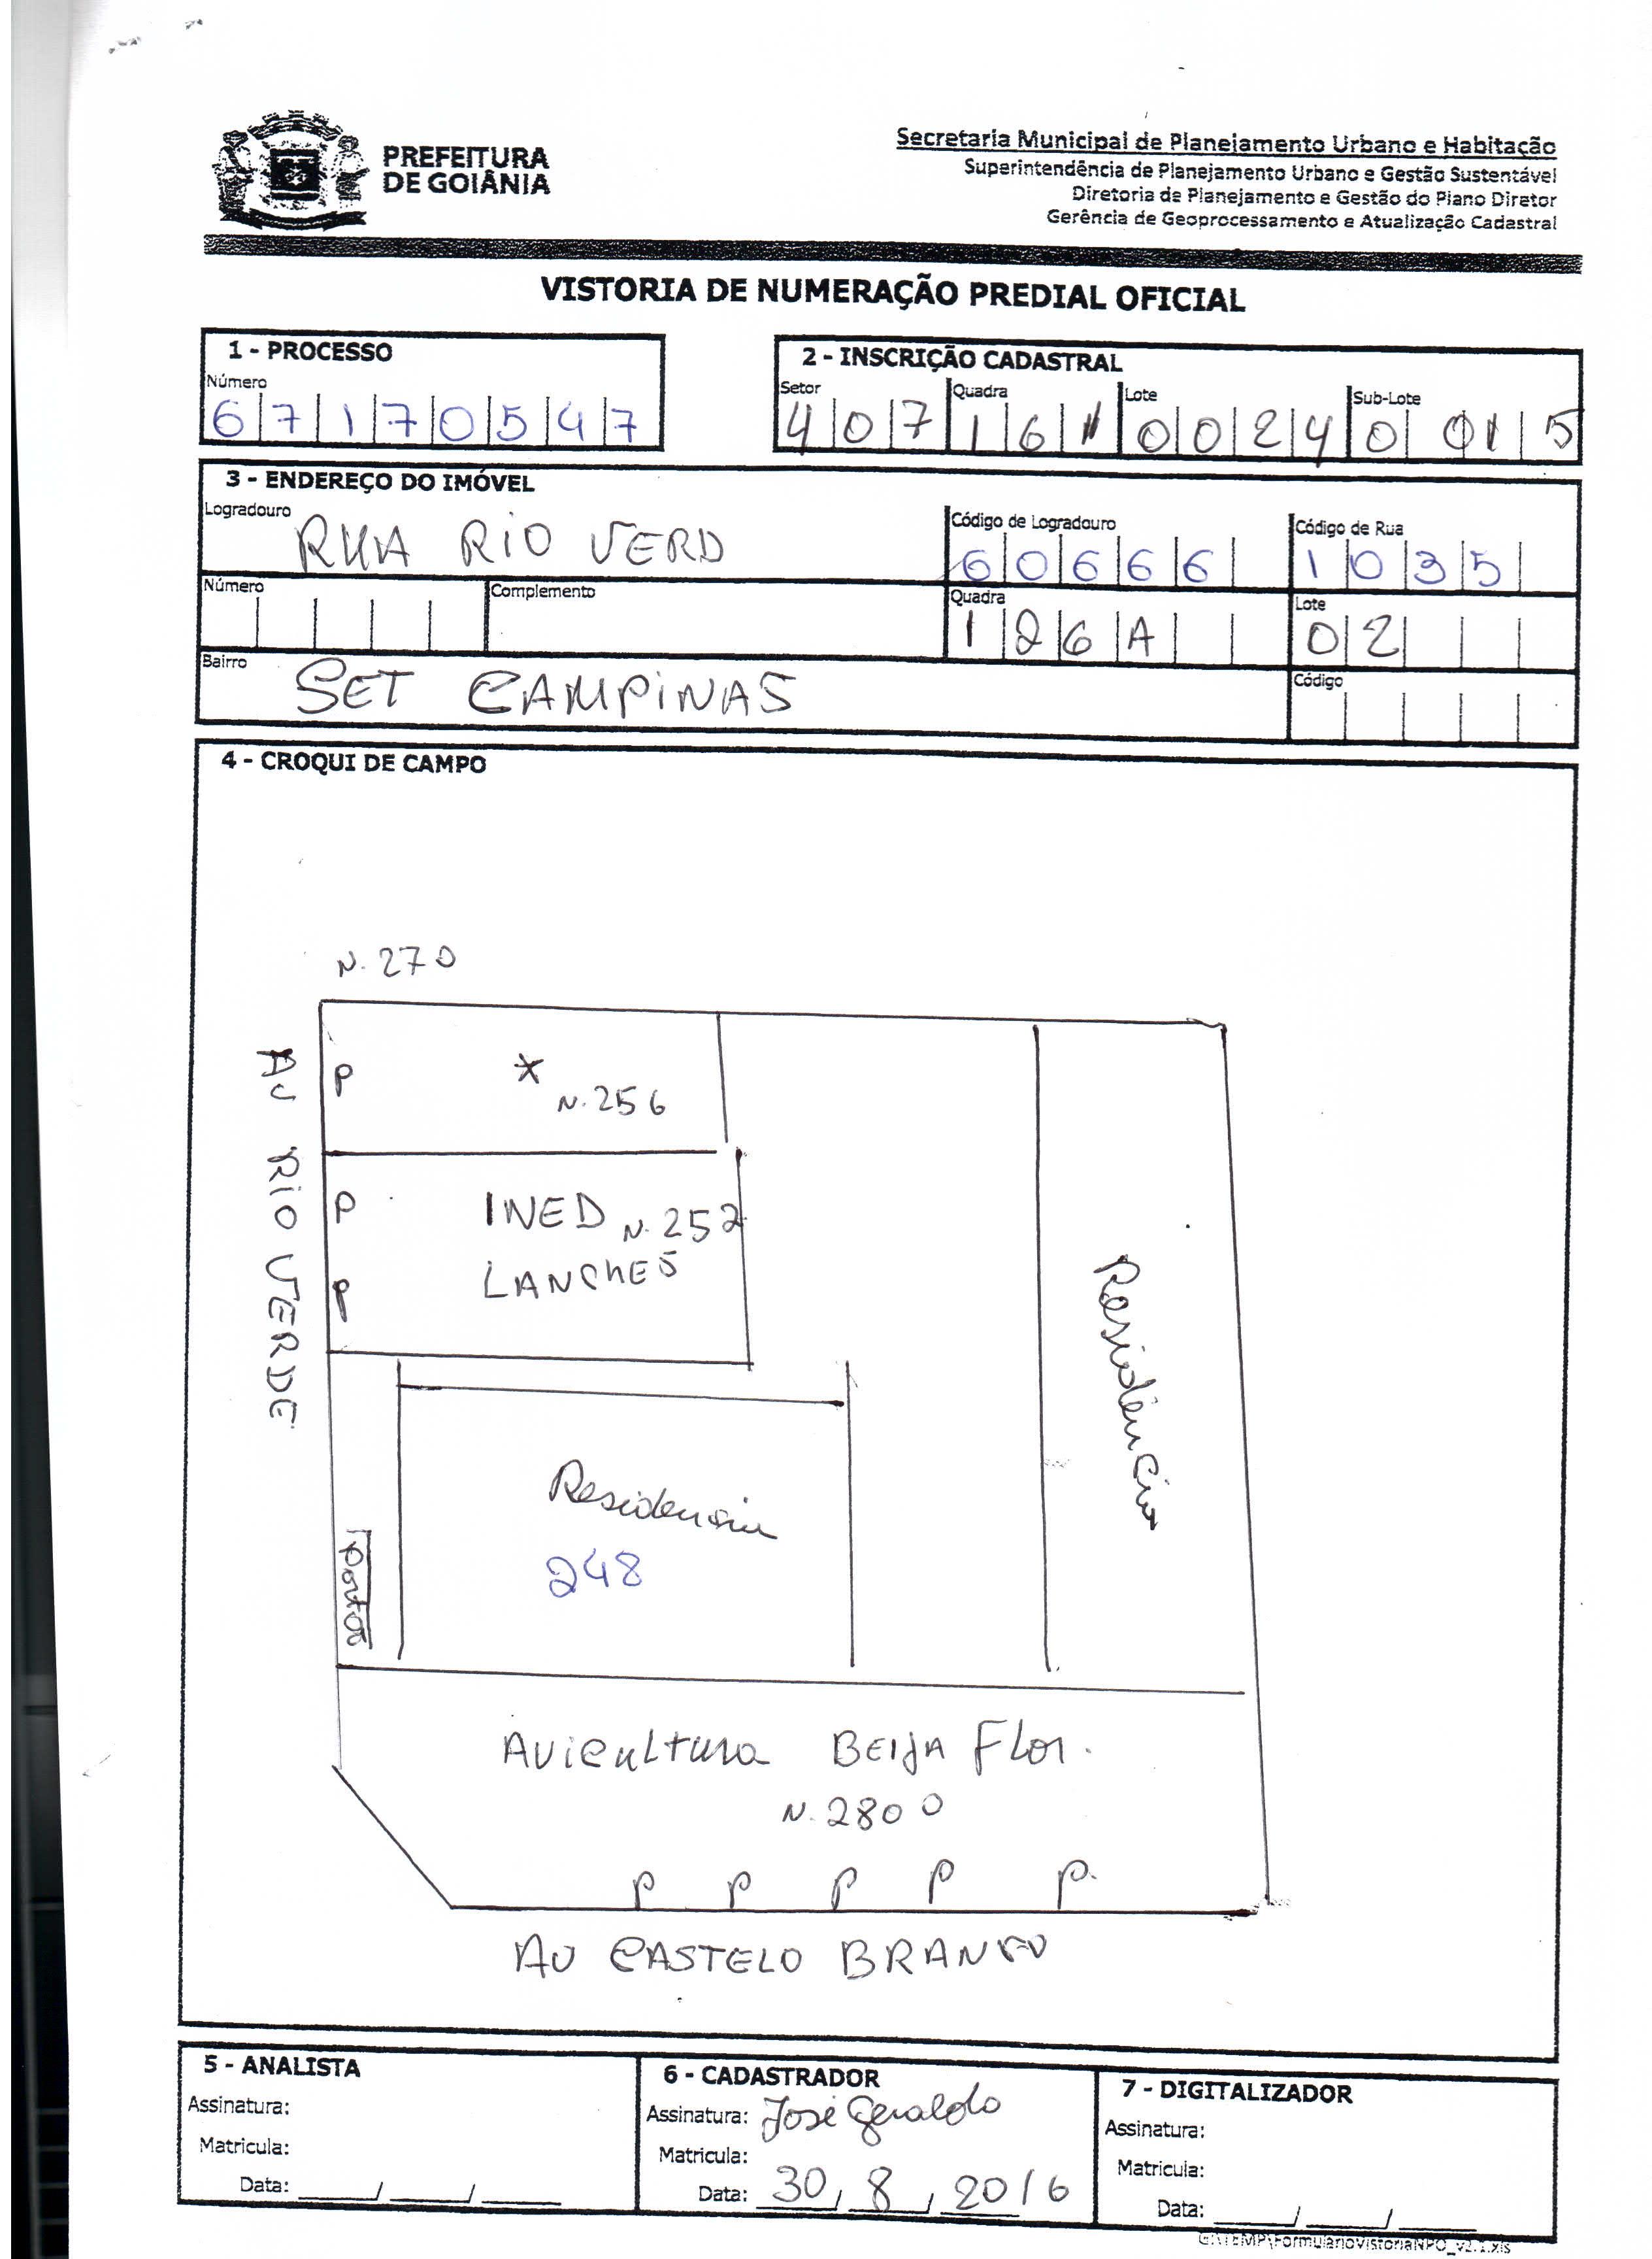 PREFEITURA
DE GOIÂNIA
Secretaria Municipal de Planejamento Urbano e Habitação
Superintendência de Planejamento Urbano e Gestão Sustentável
Diretoria de Planejamento e Gestão do Plano Diretor
Gerência de Geoprocessamento e Atualização Cadastral
VISTORIA DE NUMERAÇÃO PREDIAL OFICIAL
1 - PROCESSO
Número
67170547
2 - INSCRIÇÃO CADASTRAL
Setor Quadra Lote Sub-Lote
407 161 0024 0015
3 - ENDEREÇO DO IMÓVEL
Logradouro Código de Logradouro Código de Rua
RUA RIO VERD 60666 1035
Número Complemento Quadra Lote
126A 02
Bairro Código
SET CAMPINAS
4 - CROQUI DE CAMPO
N. 270
AV RIO VERDE
P * N. 256
P INED N. 252
P LANCHES
Residência
Residencia
248
Portão
Avicultura BEIJA Flor.
N. 2800
P P P P P.
AV CASTELO BRANCO
5 - ANALISTA
Assinatura:
Matricula:
Data: ____/____/____
6 - CADASTRADOR
Assinatura: José Geraldo
Matricula:
Data: 30/8/2016
7 - DIGITALIZADOR
Assinatura:
Matricula:
Data: ____/____/____
G:\TEMP\FormularioVistoriaNPO_v2.1.xls